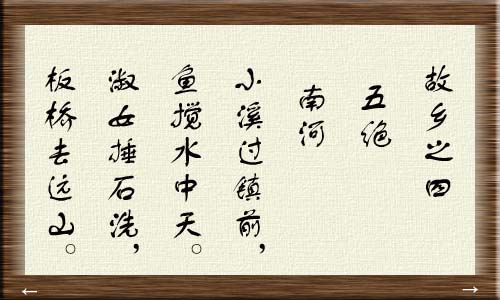 故乡之四
五绝
南河
小溪过镇前，
鱼搅水中天。
淑女捶石洗，
板桥去远山。
← →